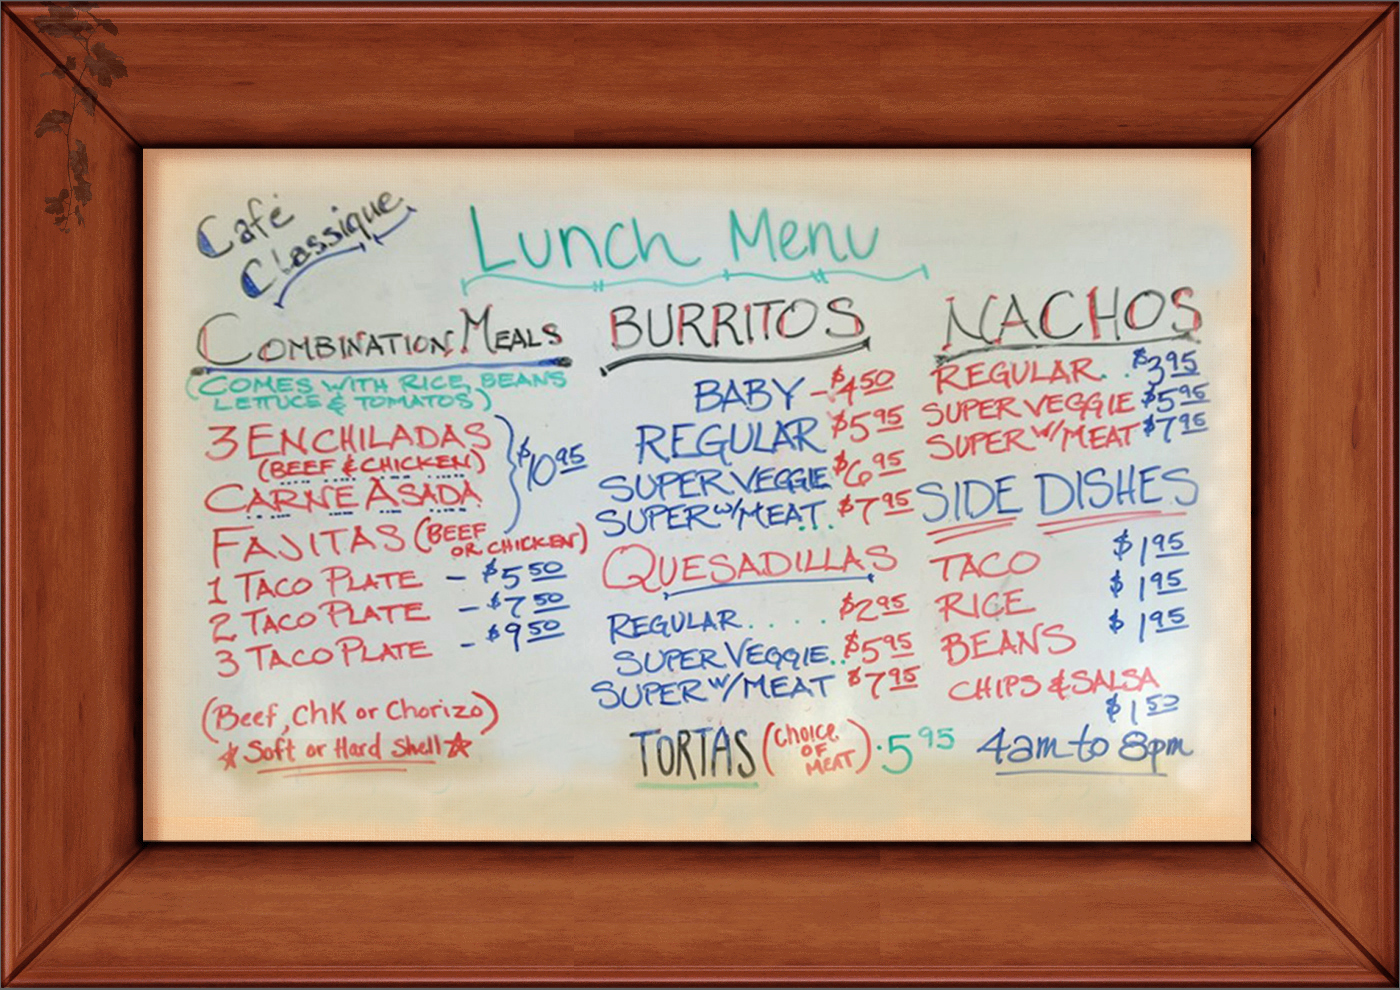 Café
Classique
Lunch Menu
COMBINATION MEALS
(COMES WITH RICE, BEANS
LETTUCE & TOMATOS)
3 ENCHILADAS
(BEEF & CHICKEN)
CARNE ASADA
FAJITAS (BEEF
OR CHICKEN)
$10.95
1 TACO PLATE - $5.50
2 TACO PLATE - $7.50
3 TACO PLATE - $9.50
(Beef, Chk or Chorizo)
☆ Soft or Hard Shell ☆
BURRITOS
BABY - $4.50
REGULAR $5.95
SUPER VEGGIE $6.95
SUPER W/MEAT... $7.95
QUESADILLAS
REGULAR..... $2.95
SUPER VEGGIE.. $5.95
SUPER W/MEAT $7.95
TORTAS (CHOICE
OF
MEAT) . 5.95
NACHOS
REGULAR.. $3.95
SUPER VEGGIE $5.95
SUPER W/MEAT $7.95
SIDE DISHES
TACO $1.95
RICE $1.95
BEANS $1.95
CHIPS & SALSA
$1.50
4am to 8pm